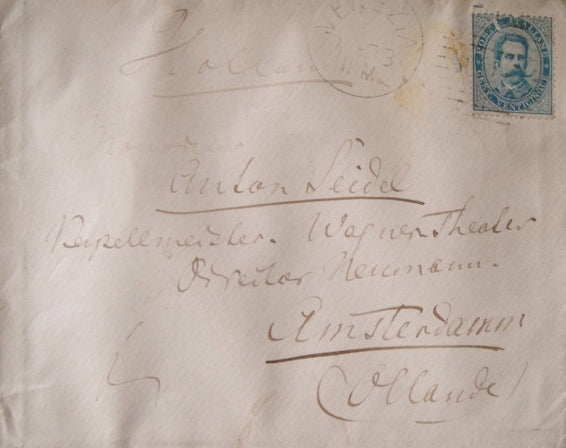 VENEZIA
POSTE ITALIANE
CENT. VENTICINQUE
Holland
Anton Seidel
Kapellmeister. Wagner Theater
Director Neumann.
Amsterdamm
(Ollande)